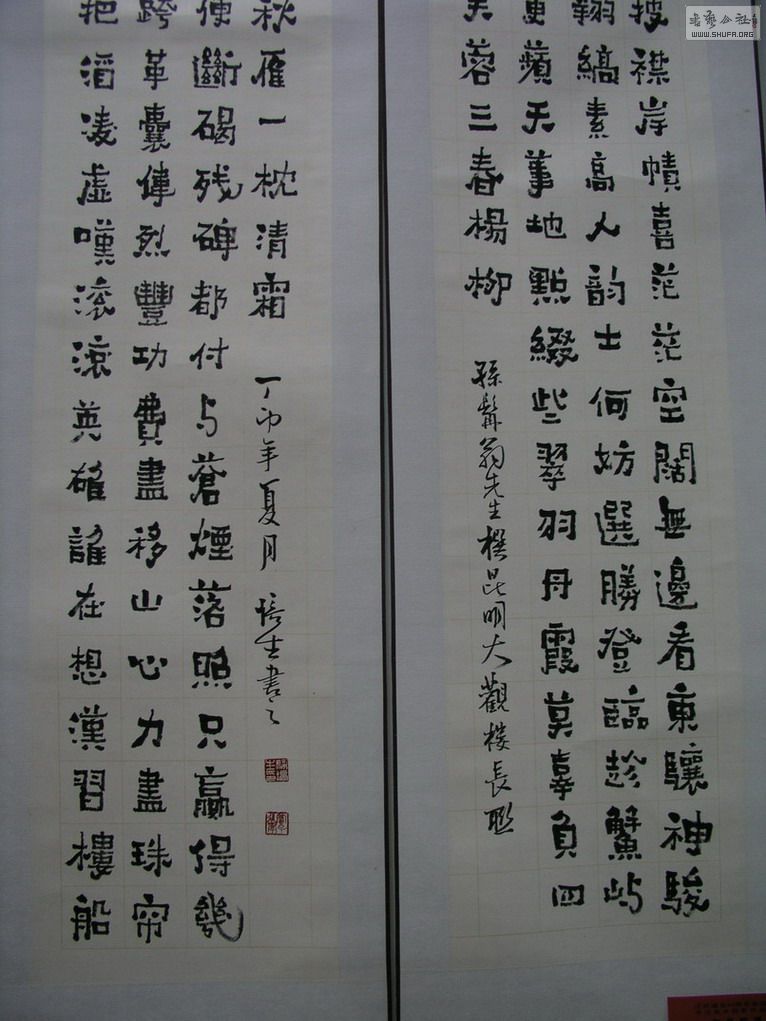 披襟岸幘喜茫茫空闊無邊看東驤神駿
翔縞素高人韵士何妨選勝登臨趁蟹嶼
更蘋天葦地點綴些翠羽丹霞莫辜負四
芙蓉三春楊柳
孫髯翁先生撰昆明大觀樓長聯
把酒凌虛嘆滚滚英雄誰在想漢習樓船
跨革囊偉烈豐功費盡移山心力盡珠帘
便斷碣残碑都付与蒼煙落照只贏得幾
秋雁一枕清霜
丁卯年夏月 培生書之
書藝公社
WWW.SHUFA.ORG